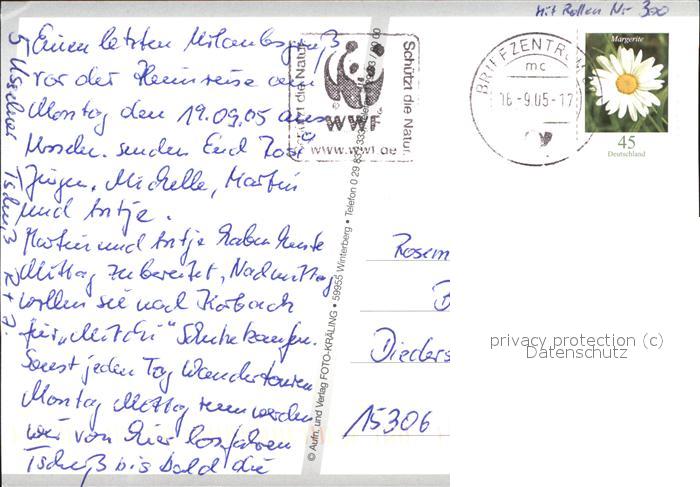 Mit Rollen Nr. 300
Einen letzten
vor der Heimreise am
Montag den 19.09.05 aus
senden Euch
Jürgen, Michelle, Martin
und Antje.
Martin und Antje haben heute
Mittag zubereitet, Nachmittag
wollen sie nach Korbach
für Schuhe kaufen.
Sonst jeden Tag Wandertouren
Montag Mittag werden
wir von hier losfahren
Tschüß bis bald die
Tschüß R + J.
Schützt die Natur
WWF
www.wwf.de
Schützt die Natur
BRIEFZENTRUM
mc
16-9.05-17
Margerite
45
Deutschland
© Aufn. und Verlag FOTO-KRÄLING • 59955 Winterberg • Telefon 0 29
Rosem
B
Dieders
15306
privacy protection (c)
Datenschutz